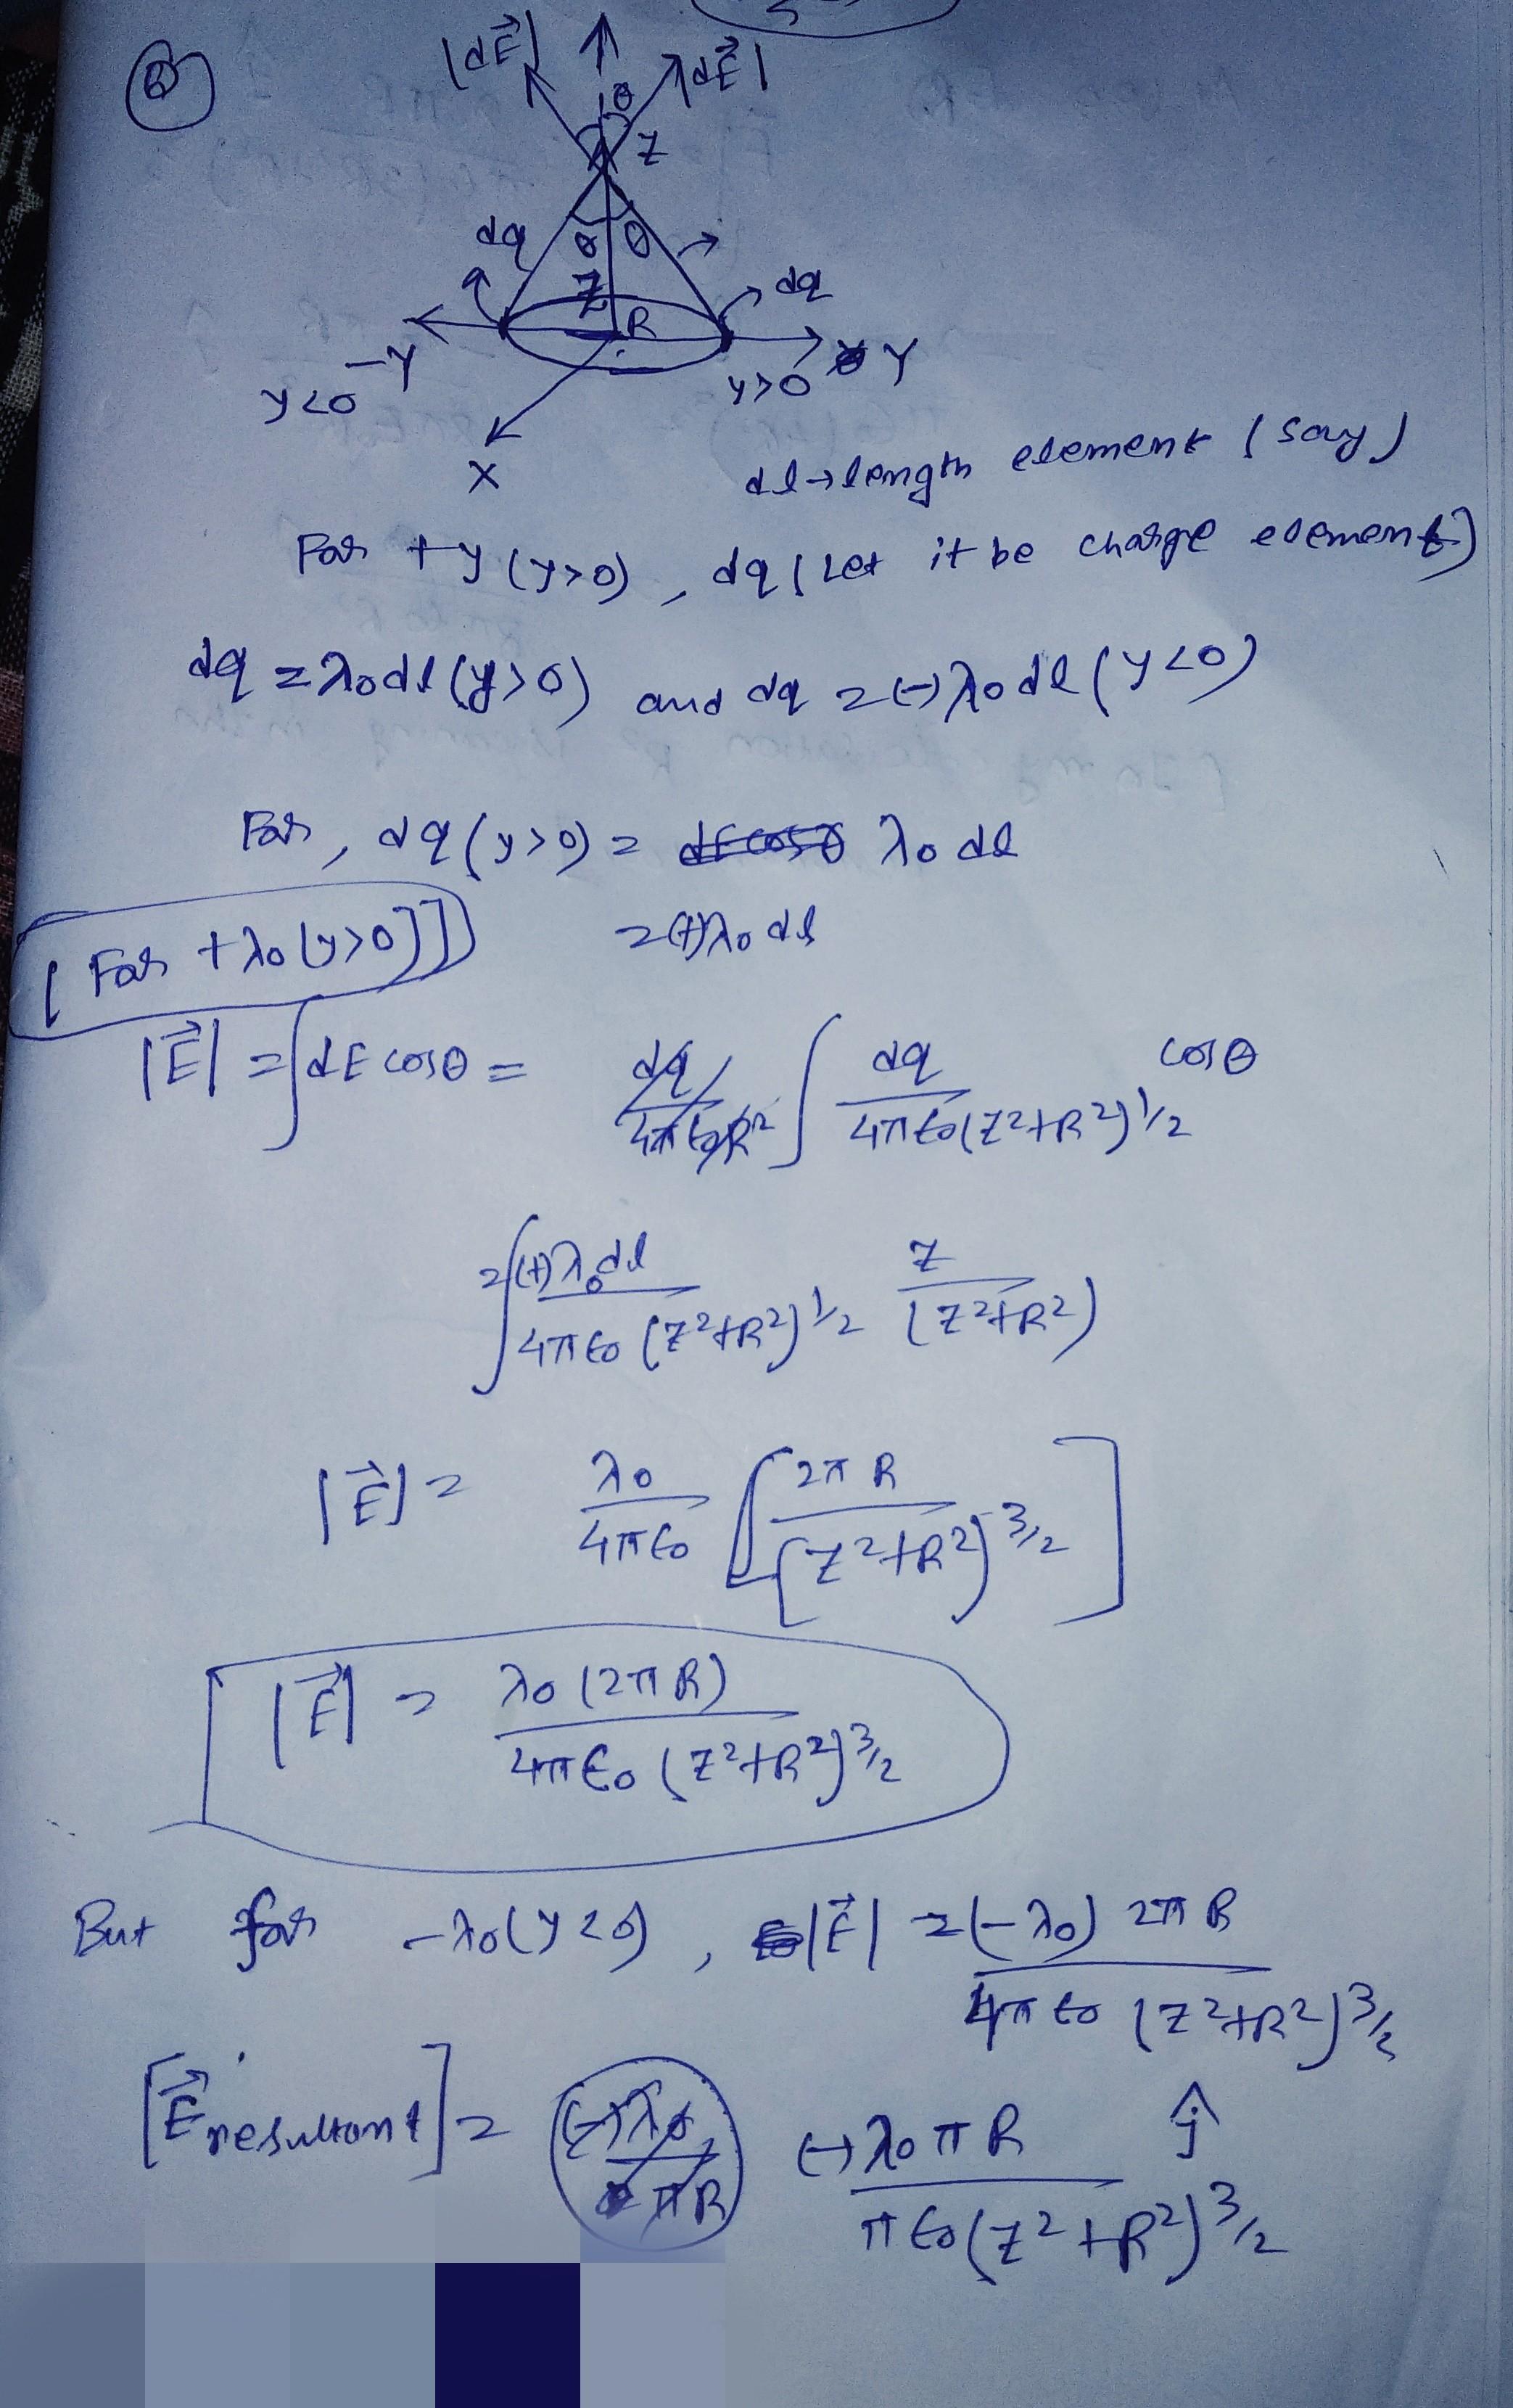 |dE⃗| |dE⃗|
θ
Z
dq
θ θ
Z
dq
R
-Y
Y
y<0
y>0
X
dl→length element (say)
For +y (y>0), dq (Let it be charge element)
dq = λ₀dl (y>0) and dq = (-)λ₀dl (y<0)
For, dq (y>0) = dEcosθ λ₀ dl
[For +λ₀ (y>0)]] = (+)λ₀ dl
|E⃗| = ∫dE cosθ = dq/4πϵ₀R² ∫ dq/4πϵ₀(Z²+R²)^1/2 cosθ
= ∫(+)λ₀dl/4πϵ₀(Z²+R²)^1/2 Z/(Z²+R²)
|E⃗| = λ₀/4πϵ₀ [2πR/(Z²+R²)^3/2]
|E⃗| = λ₀(2πR)/4πϵ₀(Z²+R²)^3/2
But for -λ₀(y<0), |E⃗| = (-λ₀) 2πR/4πϵ₀(Z²+R²)^3/2
[E⃗resultant] = (-)λ₀/πR (-)λ₀πR/πϵ₀(Z²+R²)^3/2 ĵ